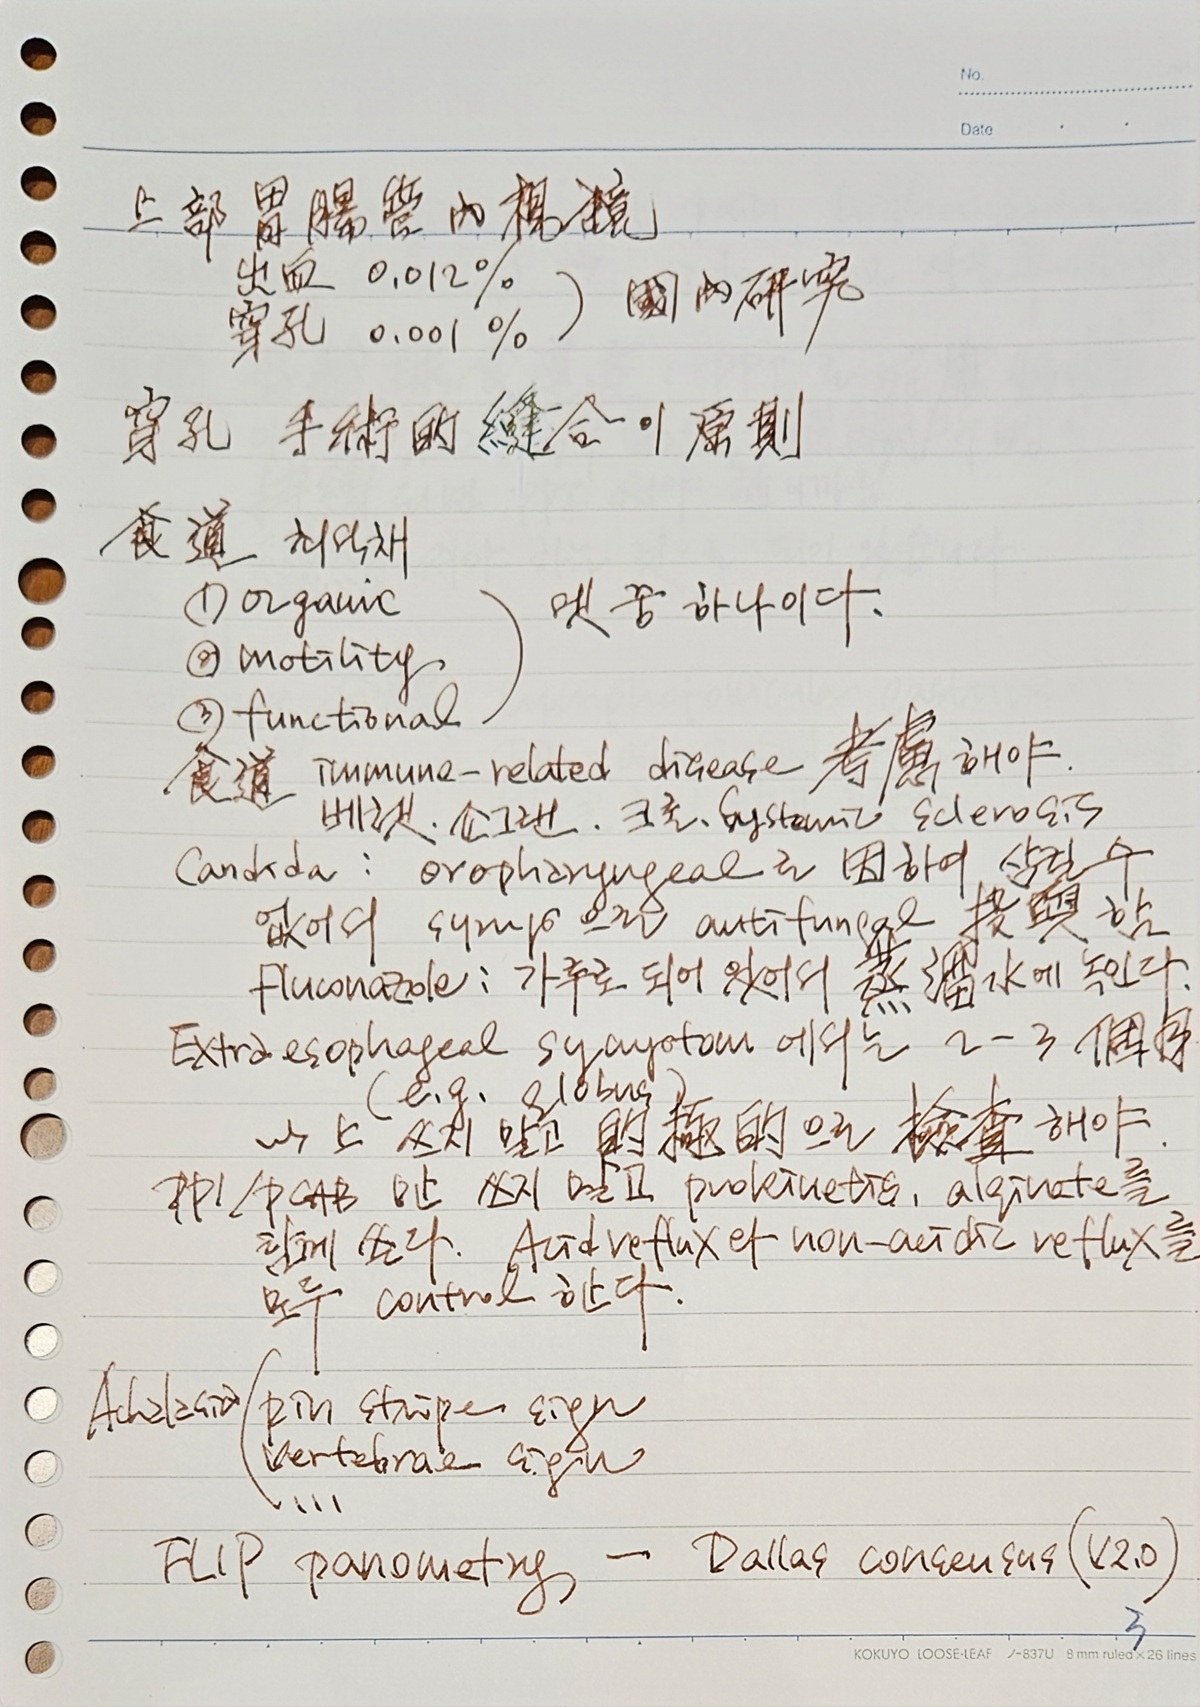 No.
Date
上部 胃腸管 內視鏡
出血 0.012%
穿孔 0.001%
國內硏究
穿孔 手術的 縫合이 原則
食道
① organic
② motility
③ functional
셋 中 하나이다.
食道 immune-related disease 考慮해야.
베체트. 쇼그렌. 크론. systemic sclerosis
Candida : oropharyngeal로 因하여 삼킬 수
없어서 symp으로 antifungal 投與함
Fluconazole : 가루로 되어 있어서 蒸溜水에 녹인다.
Extraesophageal symptom에서는 2-3 個月
(e.g. globus)
쓰지 말고 的極的으로 檢査해야.
PPI/PCAB만 쓰지 말고 prokinetic, alginate를
함께 쓴다. Acid reflux와 non-acidic reflux를
모두 control 한다.
Achalasia
pin stripe sign
vertebrae sign
...
FLIP panometry – Dallas consensus (V2.0)
3
KOKUYO LOOSE-LEAF ノ-837U 8 mm ruled × 26 lines